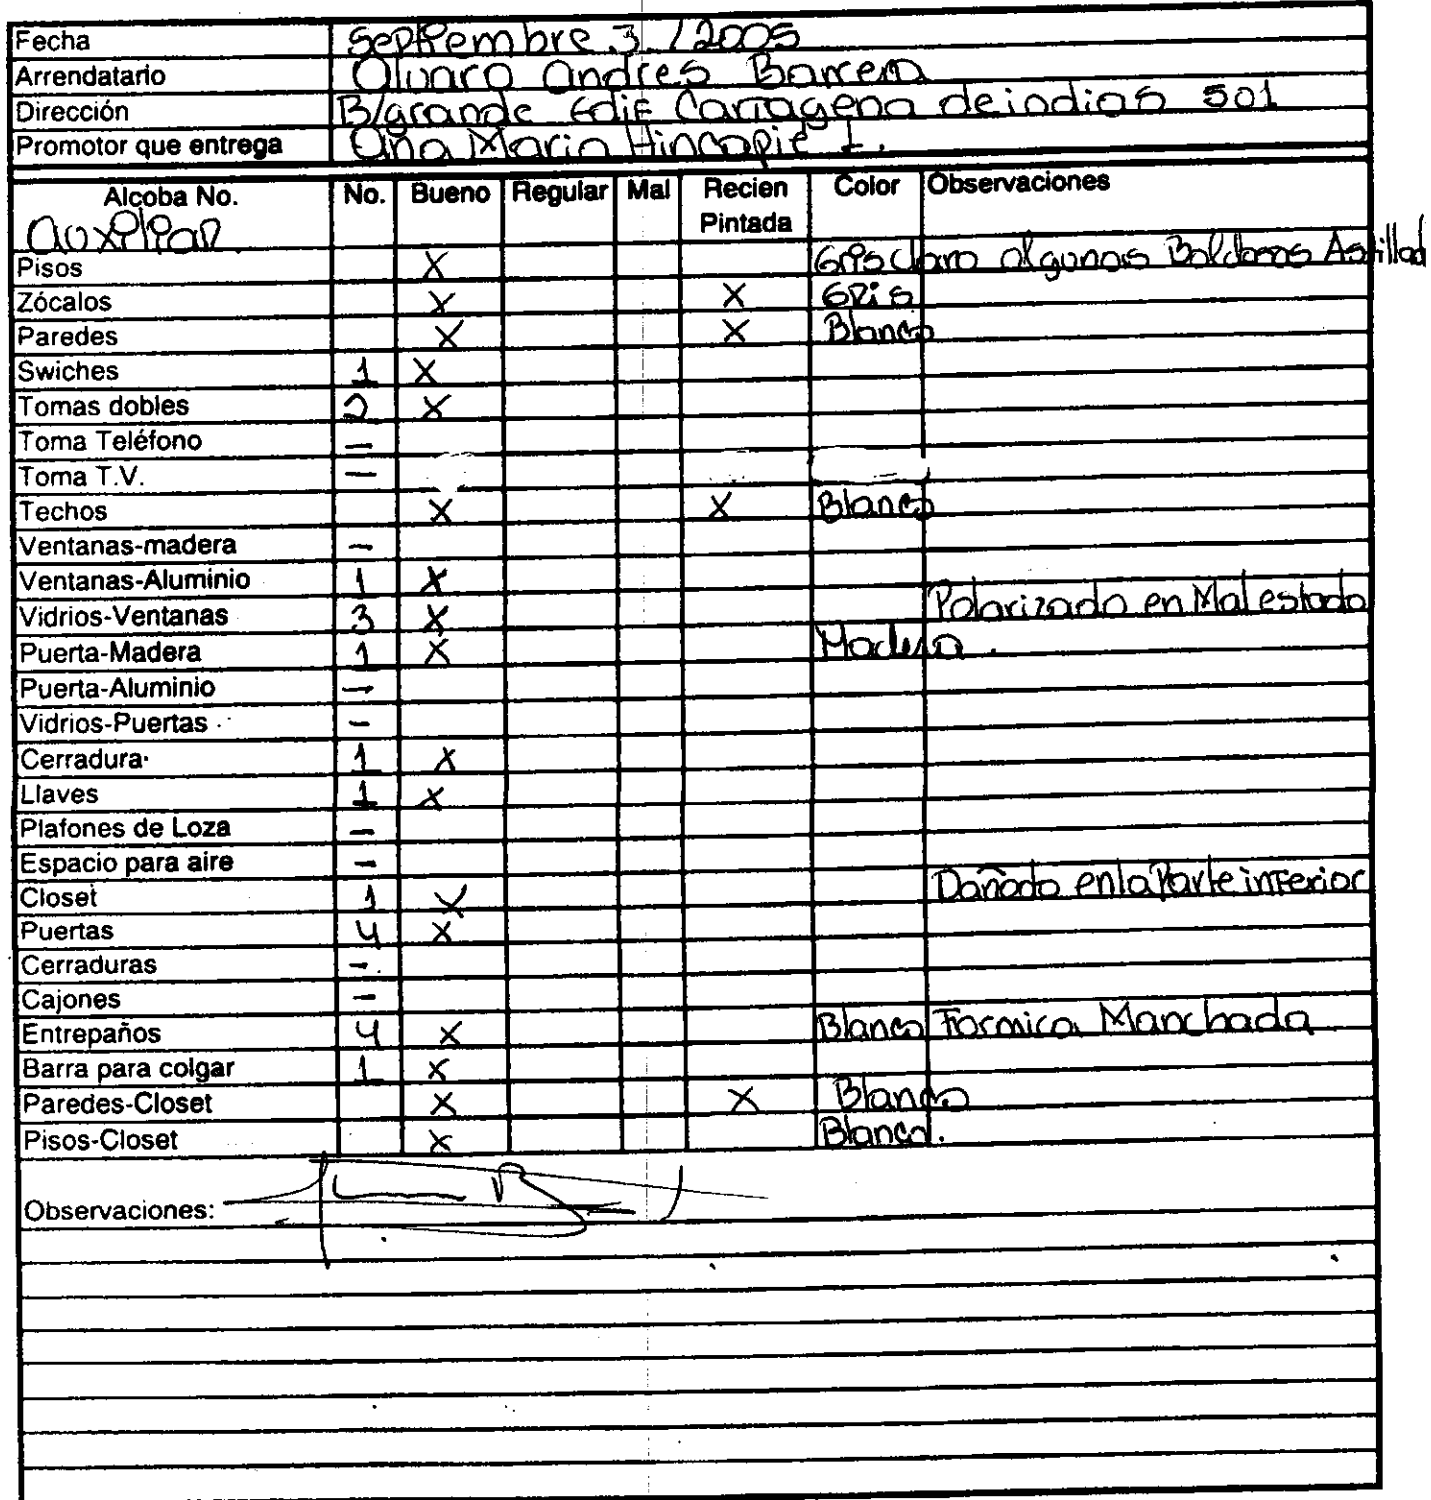 Fecha Septiembre 3 / 2005
Arrendatario Alvaro Andres Barrera
Dirección B/grande Edif Cartagena de indias 501
Promotor que entrega Ana Maria Hincapié L.
Alcoba No. No. Bueno Regular Mal Recien Pintada Color Observaciones
auxiliar
Pisos X Gris claro algunas Baldosas Astillad
Zócalos X X Gris
Paredes X X Blanco
Swiches 1 X
Tomas dobles 2 X
Toma Teléfono —
Toma T.V. —
Techos X X Blanco
Ventanas-madera —
Ventanas-Aluminio 1 X
Vidrios-Ventanas 3 X Polarizado en Mal estado
Puerta-Madera 1 X Madera.
Puerta-Aluminio —
Vidrios-Puertas —
Cerradura 1 X
Llaves 1 X
Plafones de Loza —
Espacio para aire —
Closet 1 X Dañado en la Parte inferior
Puertas 4 X
Cerraduras —
Cajones —
Entrepaños 4 X Blanco Formica Manchada
Barra para colgar 1 X
Paredes-Closet X X Blanco
Pisos-Closet X Blanco.
Observaciones: